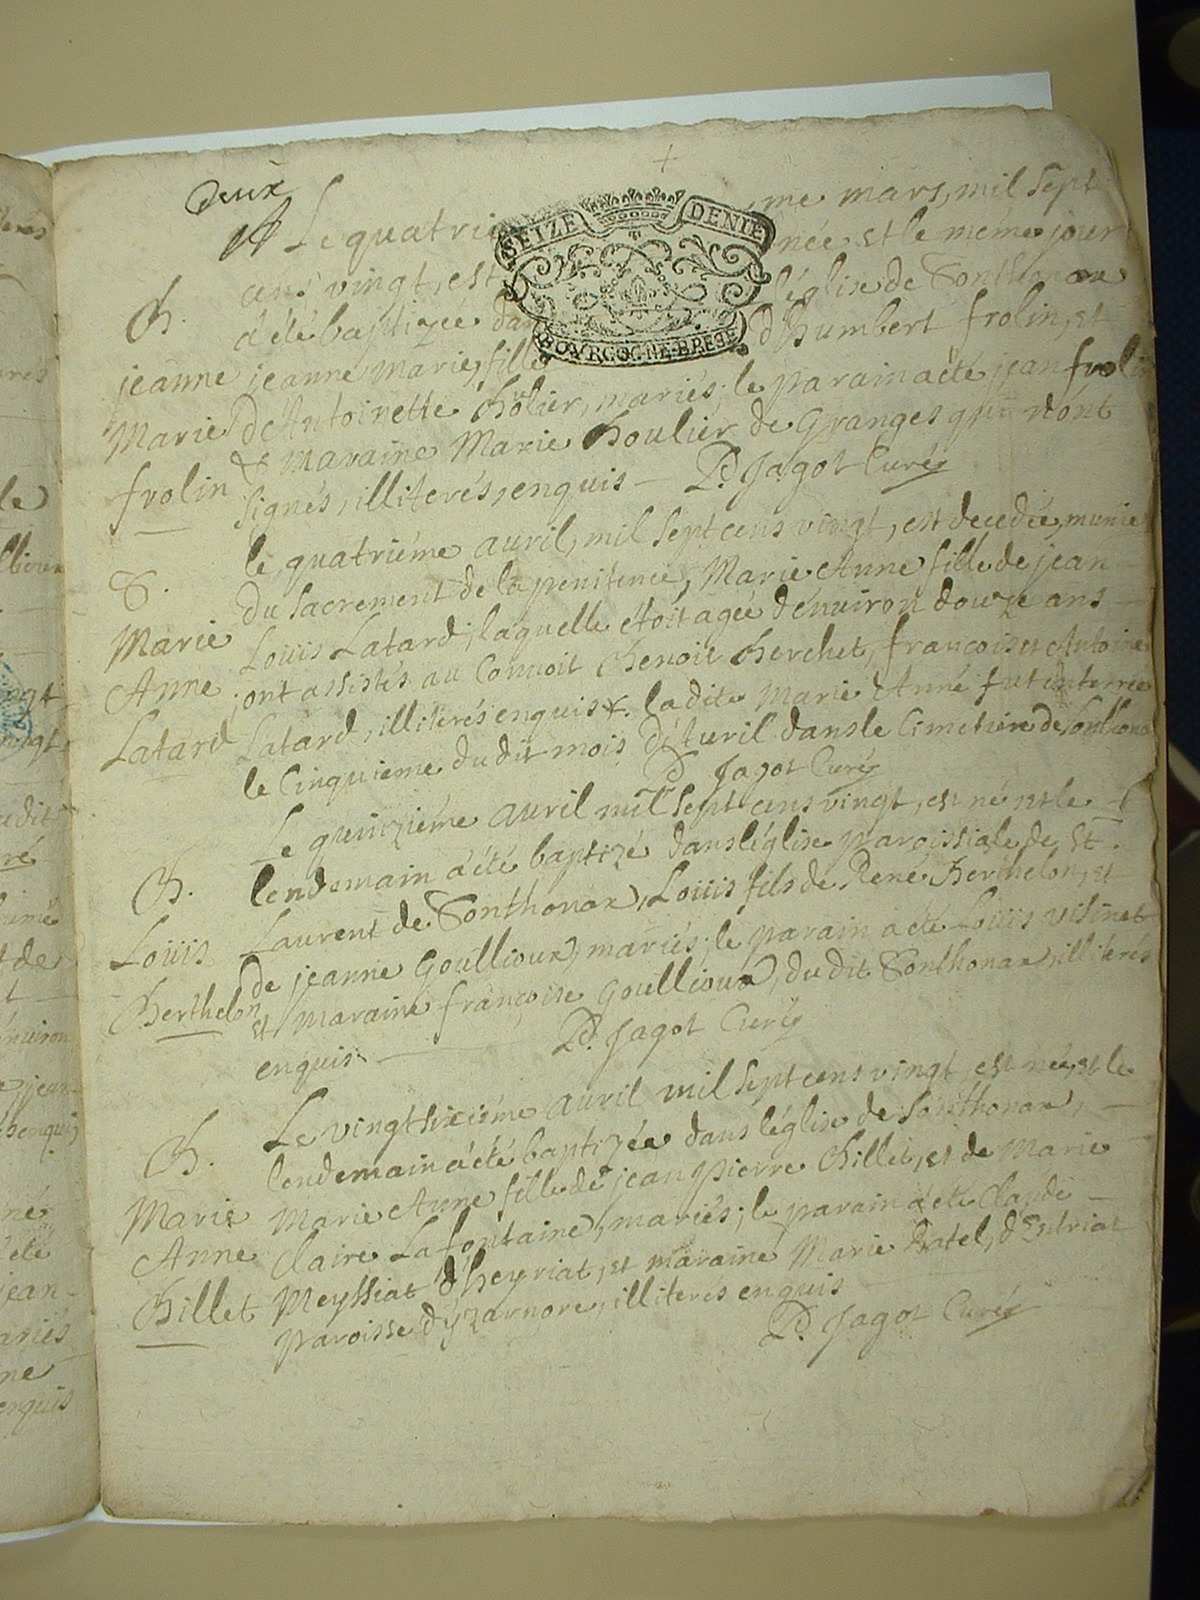 Deux
Le quatrie me mars, mil sept
SEIZE DENIE
cens vingt, est née et le méme jour
B. a été baptizée dan l'église de Sonthonax
BOVRGOGNE·BRESE
jeanne jeanne marie, fille d'humbert frolin, et
Marie d'Antoinette hôlier, mariés; le parain a été jean frolin
frolin & maraine Marie houlier de Granges qui n'ont
signés, illiterés, enquis — Pd. Jagot Curé
le quatriéme auril, mil sept cens vingt, est decedée, munie
S. du sacrement de la penitence, Marie Anne fille de jean
Marie Louis Latard, laquelle étoit agée d'enuiron douze ans
Anne ont assistés au Conuoit Benoit Berchet, françois et Antoine
Latard Latard, illiterés enquis. la dite Marie Anne fut enterrée
le Cinquieme du dit mois d'Auril dans le Cimetiere de Sonthonax
Pd Jagot Curé
Le quinziéme auril mil sept cens vingt, est né et le
B. lendemain a été baptizé dans l'église paroissiale de St.
Louis Laurent de Sonthonax, Louis fils de René Berthelon, et
Berthelon de jeanne Goullioux, mariés; le parain a été Louis visinet
et maraine françoise Goullioux, du dit Sonthonax, illiterés
enquis. Pd. Jagot Curé
Le vingt sixiéme auril mil sept cens vingt, est née, et le
B. lendemain a été baptizée dans l'église de Sonthonax,
Marie Marie Anne fille de jean pierre Billet, et de Marie
Anne Claire Lafontaine, mariés; le parain a été Claude
Billet Meyssiat d'heyriat, et maraine Marie Ratel, d'Intriat
paroisse d'yzarnore, illiterés enquis
Pd. Jagot Curé